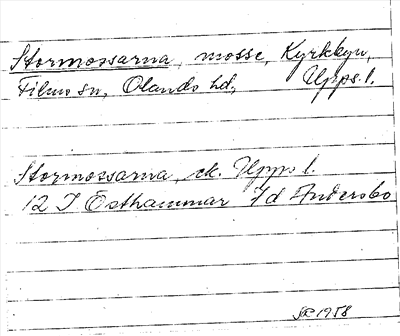 Stormossarna, mosse, Kyrkbyn,
Films sn, Olands hd, Upps. l.
Stormossarna, ek. Upps l.
12 I Östhammar 1/d Andersbo
1958